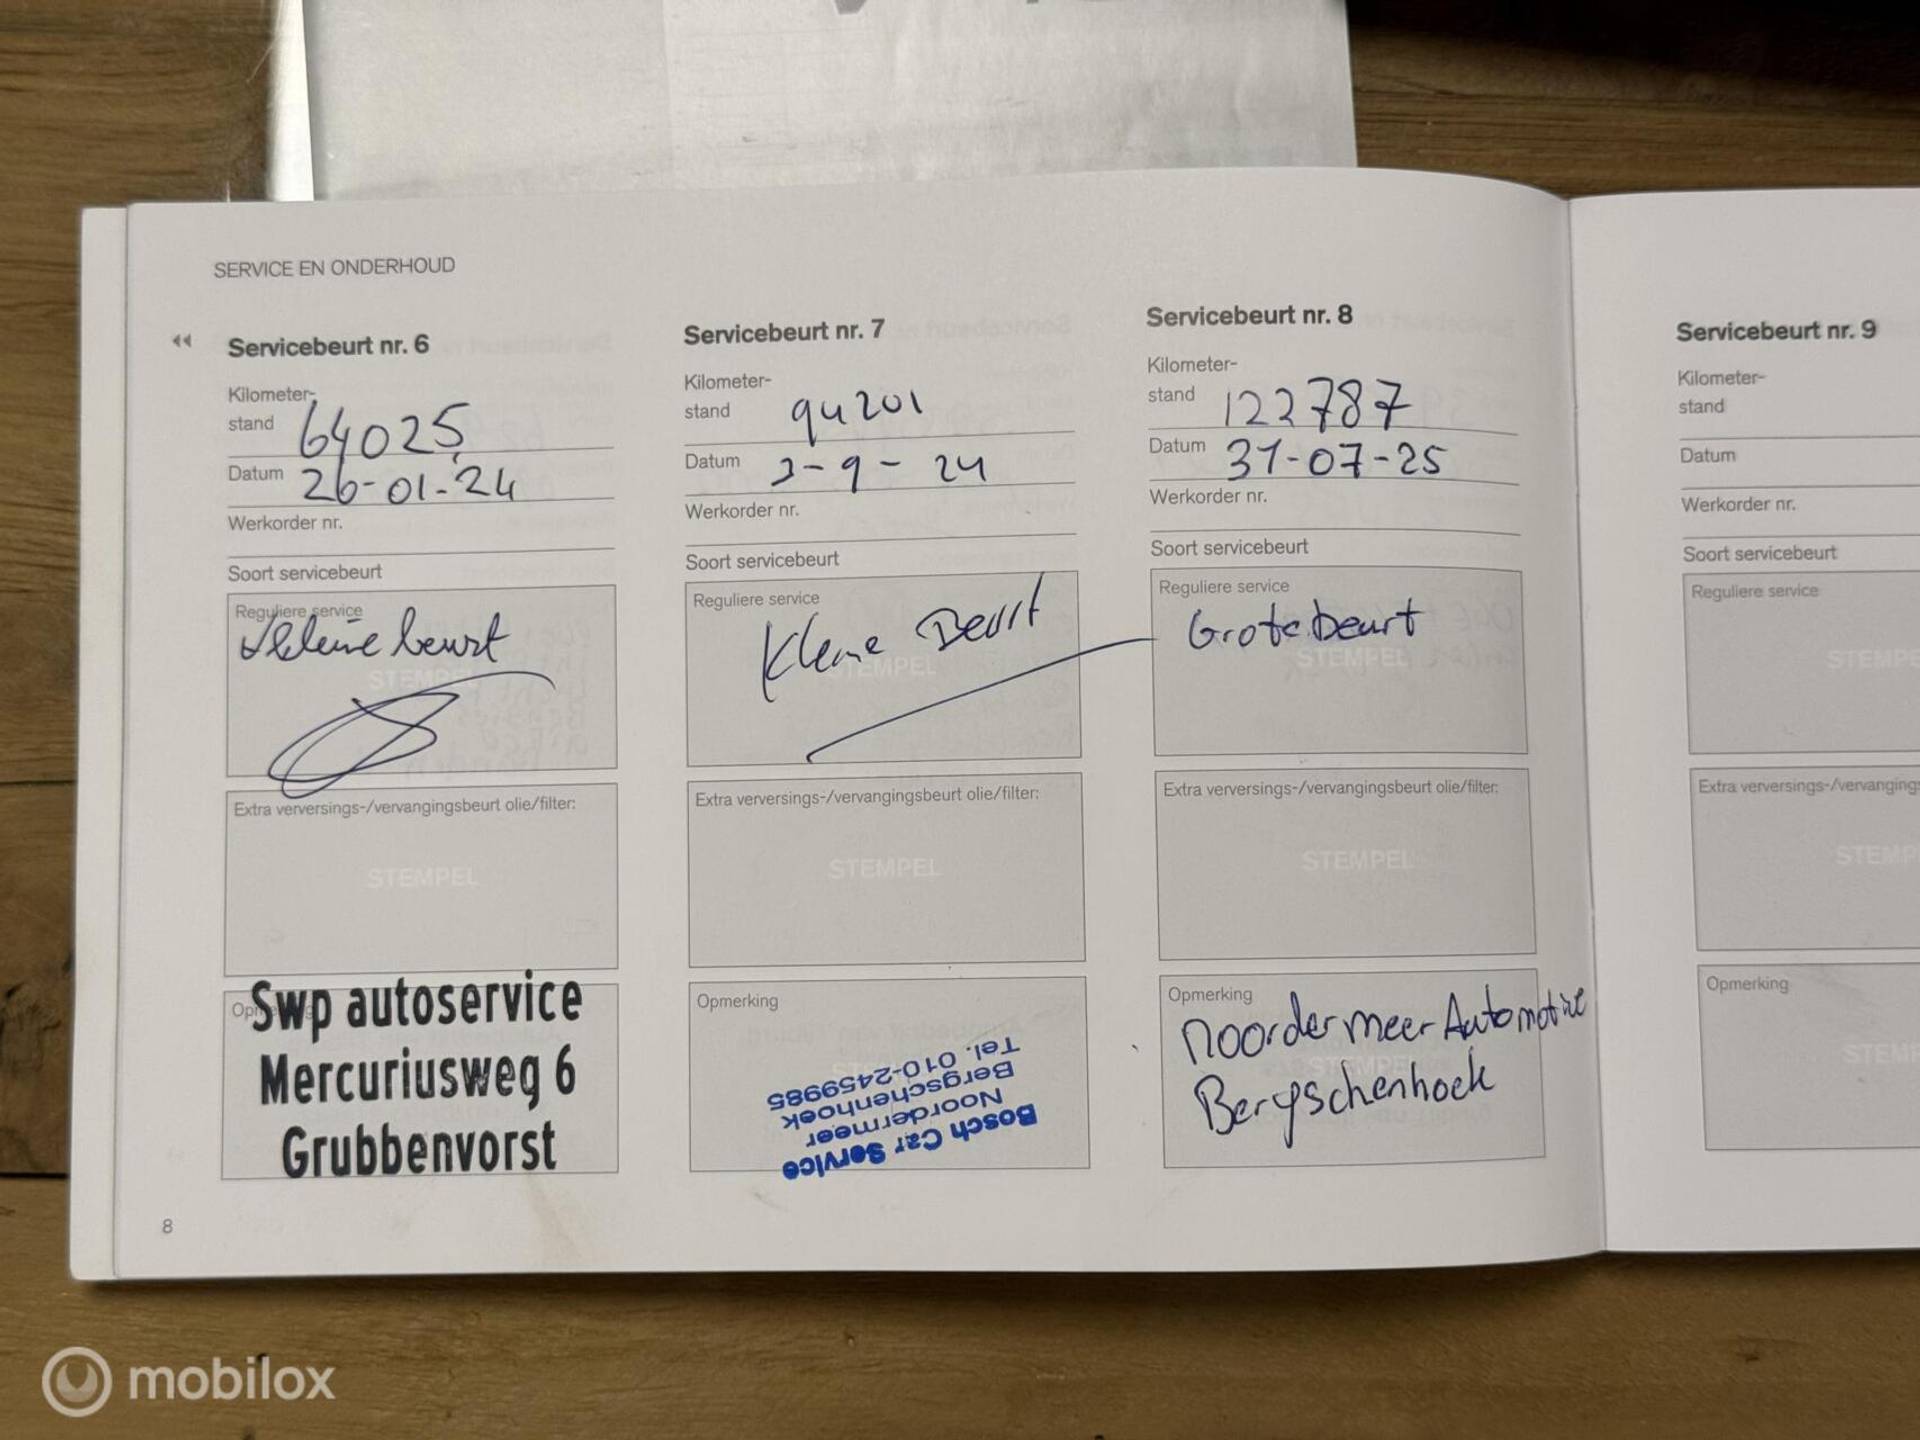 SERVICE EN ONDERHOUD
Servicebeurt nr. 6
Kilometer-
stand 64025
Datum 26-01-24
Werkorder nr.
Soort servicebeurt
Reguliere service
Kleine beurt
STEMPEL
Extra verversings-/vervangingsbeurt olie/filter:
STEMPEL
Opmerking
Swp autoservice
Mercuriusweg 6
Grubbenvorst
8
Servicebeurt nr. 7
Kilometer-
stand 94201
Datum 3-9-24
Werkorder nr.
Soort servicebeurt
Reguliere service
Kleine Beurt
STEMPEL
Extra verversings-/vervangingsbeurt olie/filter:
STEMPEL
Opmerking
Bosch Car Service
Noordermeer
Bergschenhoek
Tel. 010-2459985
Servicebeurt nr. 8
Kilometer-
stand 122787
Datum 31-07-25
Werkorder nr.
Soort servicebeurt
Reguliere service
Grote beurt
STEMPEL
Extra verversings-/vervangingsbeurt olie/filter:
STEMPEL
Opmerking
Noordermeer Automotive
STEMPEL
Bergschenhoek
Servicebeurt nr. 9
Kilometer-
stand
Datum
Werkorder nr.
Soort servicebeurt
Reguliere service
STEMPE
Extra verversings-/vervangings
STEMP
Opmerking
STEMP
mobilox